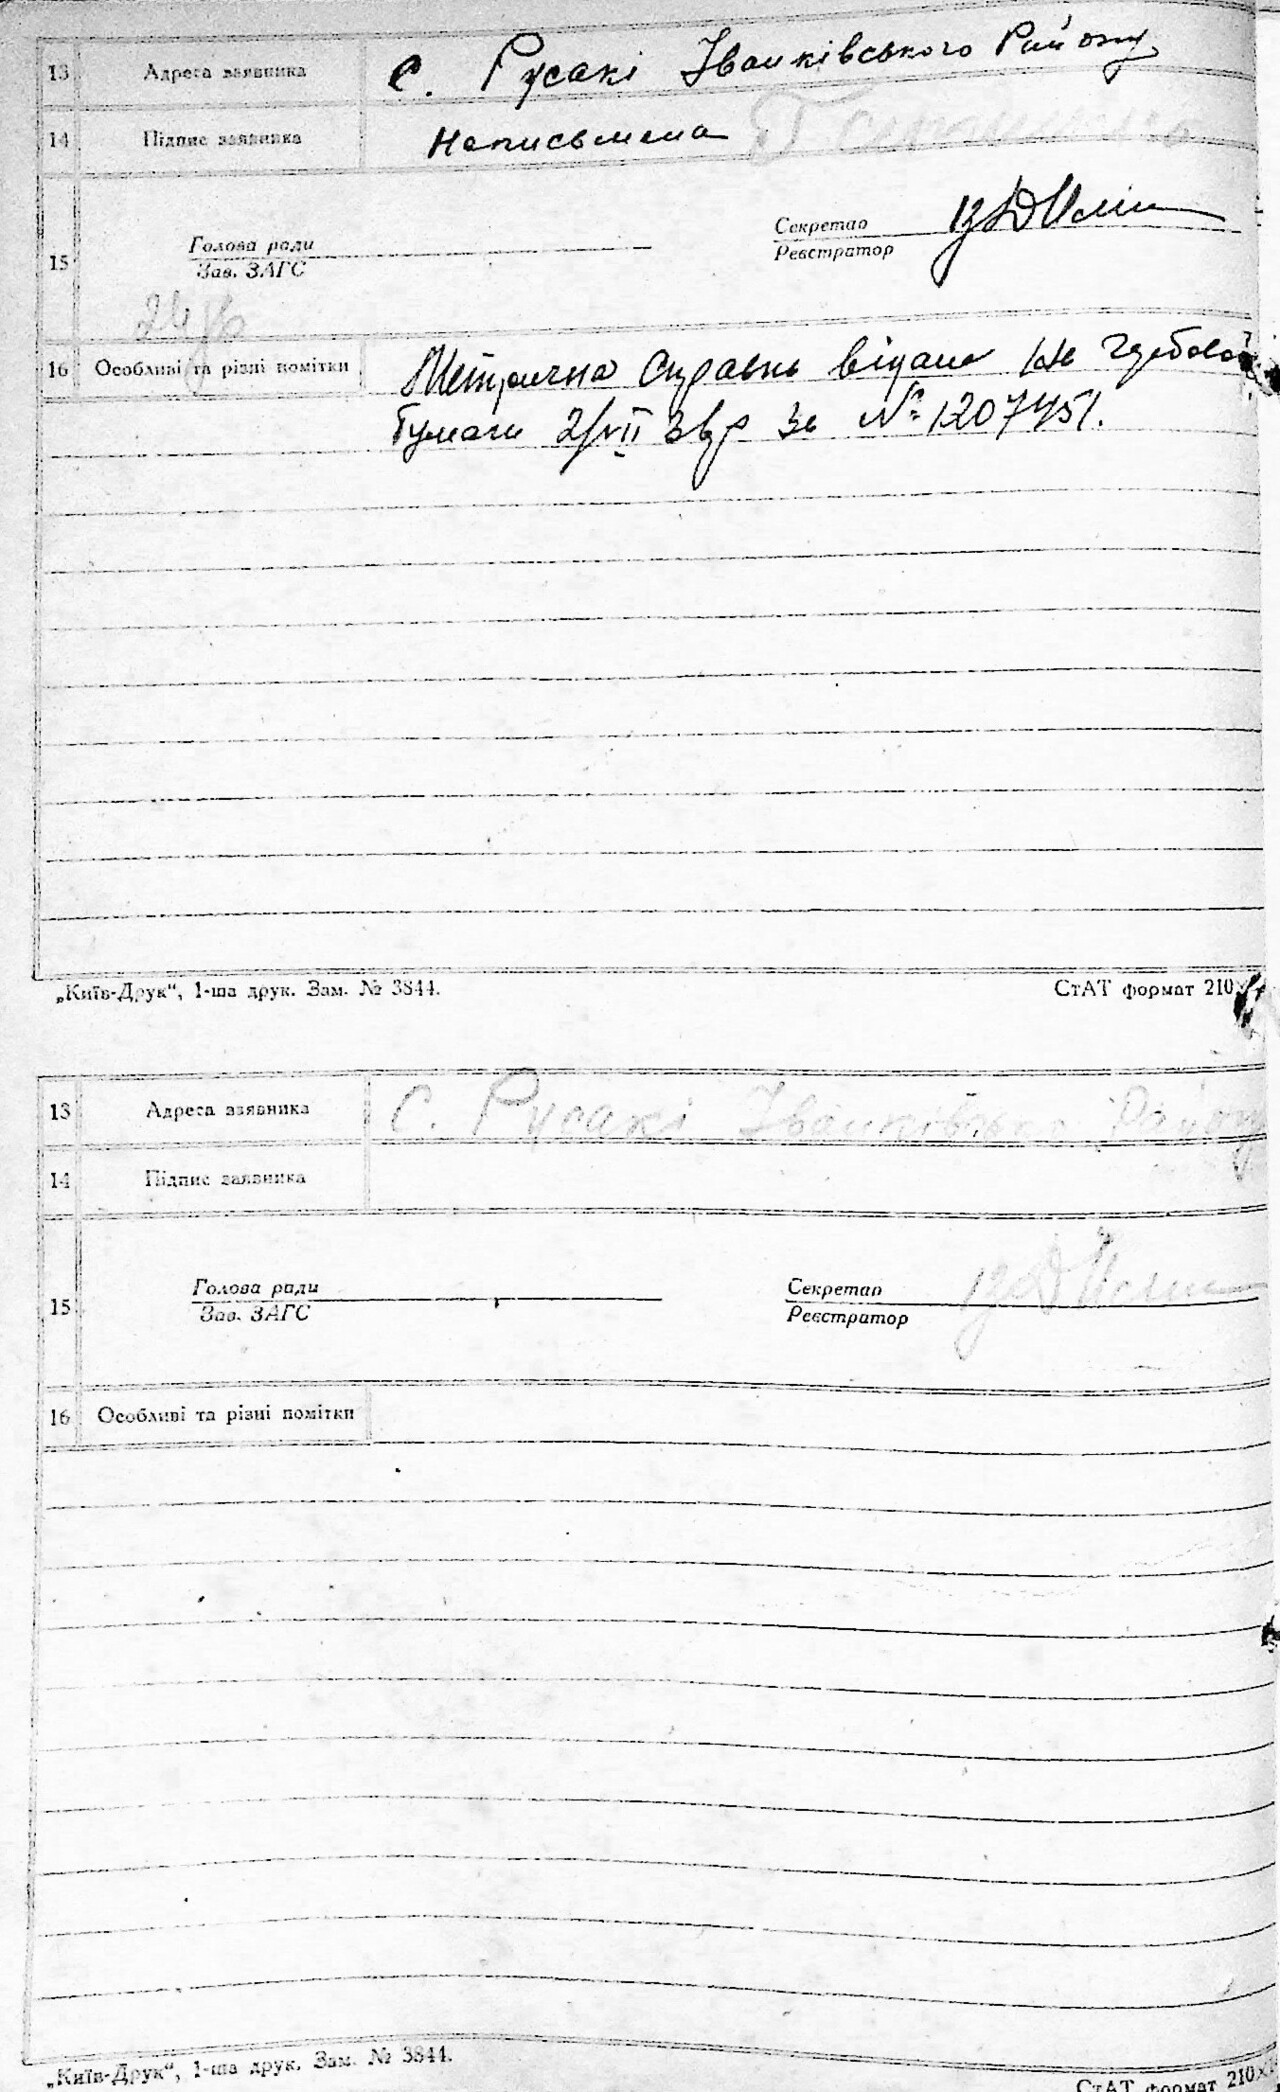 13 Адреса заявника с. Русакі Іванківського Району
14 Підпис заявника Неписьмена
Секретар
Голова ради
Реєстратор
15
Зав. ЗАГС
16 Особливі та різні помітки Метрична справка видана на
бумаги 2/VII 3 р за № 1207451.
„Київ-Друк“, 1-ша друк. Зам. № 3844.
СтАТ формат 210
13 Адреса заявника С. Русакі Іванківського Району
14 Підпис заявника
Голова ради
Секретар
15
Зав. ЗАГС
Реєстратор
16 Особливі та різні помітки
„Київ-Друк“, 1-ша друк. Зам. № 3844.
СтАТ формат 210×